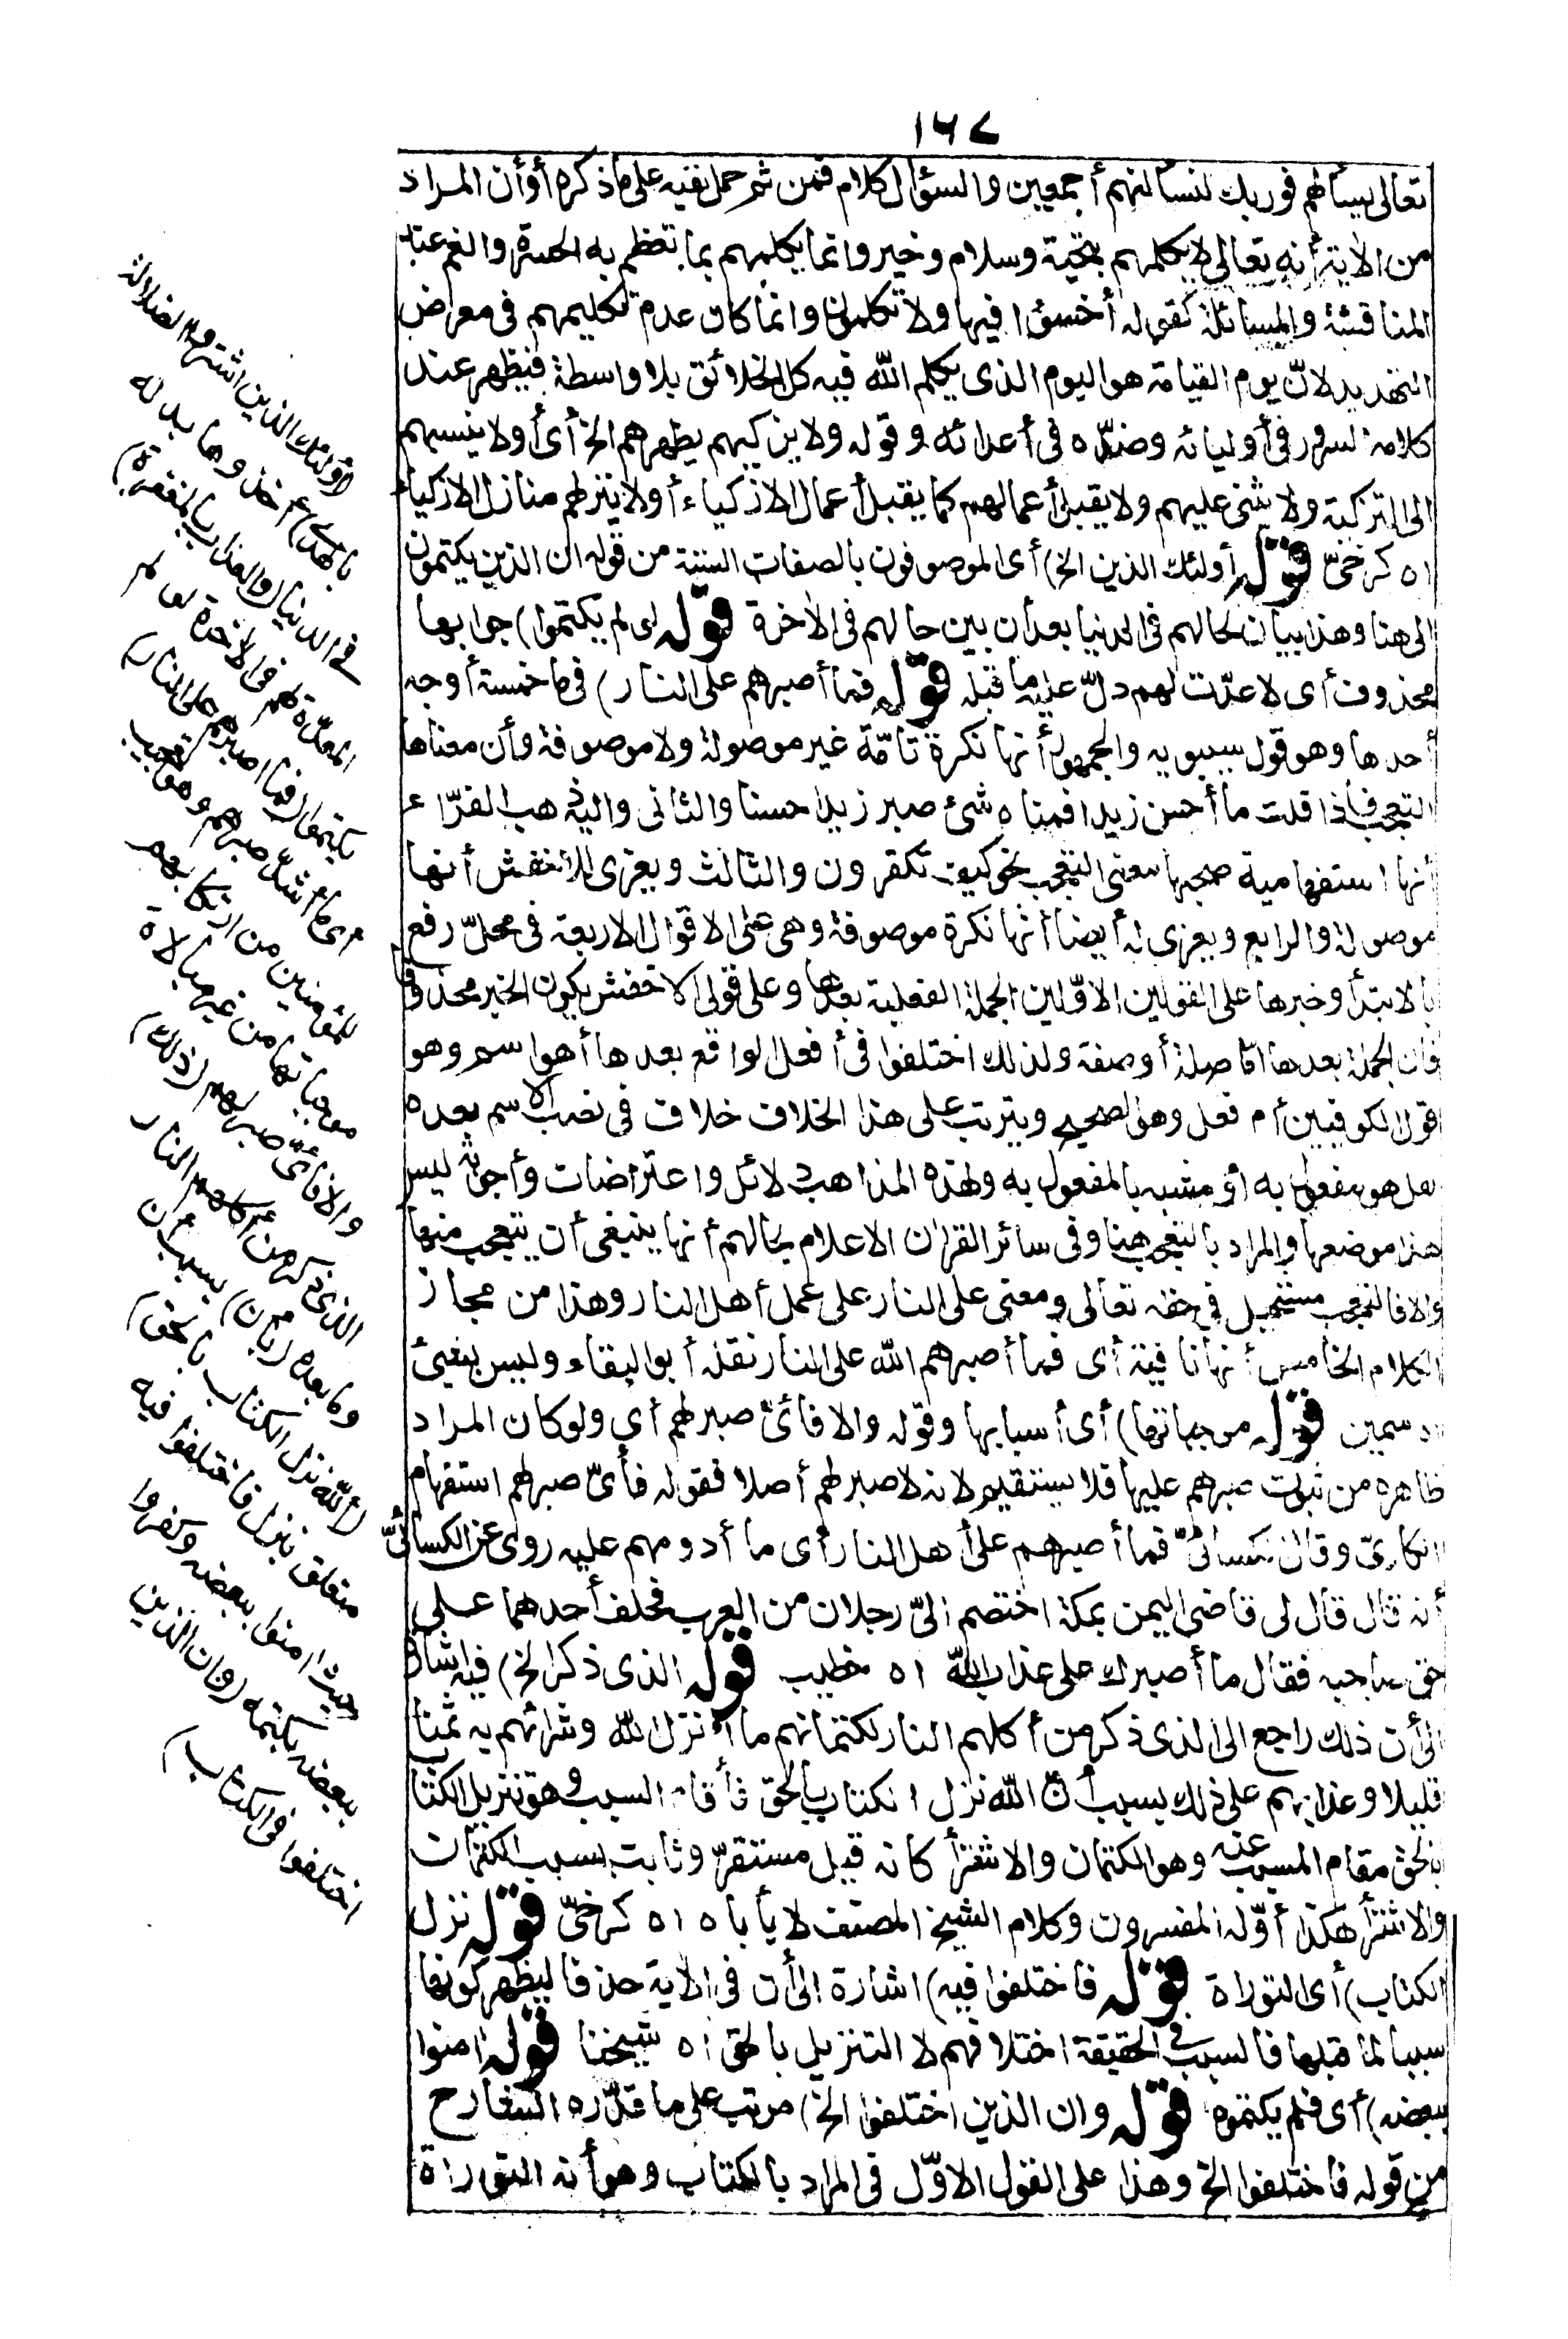 ١٦٧
تعالى يسألهم فوربك لنسألنهم أجمعين والسؤال كلام فمن ثم حمل نفيه على ماذكره أوأن المراد
من الآية أنه تعالى لا يكلمهم بتحية وسلام وخير وانما يكلمهم بما تعظم به الحسرة والغم عند
المناقشة والمسائلة كقوله أخسؤا فيها ولا تكلمون وانما كان عدم تكليمهم في معرض
التهديد لانّ يوم القيامة هو اليوم الذي يكلم الله فيه كل الخلائق بلا واسطة فيظهر عند
كلامه السرور في أوليائه وضدّه في أعدائه وقوله ولا يزكيهم يطهرهم الخ أى أولا ينسبهم
الى التزكية ولا يثنى عليهم ولا يقبل أعمالهم كما يقبل أعمال الازكياء أولا ينزلهم منازل الازكياء
اه كرخىّ قوله أولئك الذين الخ) أى الموصوفون بالصفات الستة من قوله ان الذين يكتمون
الى هنا وهذا بيان لحالهم في الدنيا بعد أن بين حالهم في الآخرة قوله لو لم يكتموا) جوابها
محذوف أى لاعدّت لهم دلّ عليه ما قبله قوله فما أصبرهم على النار) في ما خمسة أوجه
أحدها وهو قول سيبويه والجمهور أنها نكرة تامّة غير موصولة ولا موصوفة وأن معناها
التعجب فاذا قلت ما أحسن زيدا فمعناه شئ صير زيدا حسنا والثانى واليه ذهب الفرّاء
أنها استفهامية صحبها معنى التعجب نحو كيف تكفرون والثالث ويعزى للاخفش أنها
موصولة والرابع ويعزى له أيضا أنها نكرة موصوفة وهى على الاقوال الاربعة في محلّ رفع
بالابتدأ وخبرها على القولين الاوّلين الجملة الفعلية بعدها وعلى قولى الاخفش يكون الخبر محذوفا
فان الجملة بعدها اما صلة أو صفة ولذلك اختلفوا في أفعل الواقع بعدها أهو اسم وهو
قول الكوفيين أم فعل وهو الصحيح ويترتب على هذا الخلاف خلاف في نصب الاسم بعده
هل هو مفعول به أو مشبه بالمفعول به ولهذه المذاهب دلائل واعتراضات وأجوبة ليس
هذا موضعها والمراد بالتعجب هنا وفى سائر القرآن الاعلام بحالهم أنها ينبغى أن يتعجب منها
والا فالتعجب مستحيل في حقه تعالى ومعنى على النار على عمل أهل النار وهذا من مجاز
الكلام الخامس أنها نافية أى فما أصبرهم الله على النار نقله أبو البقاء وليس بشئ
اه سمين قوله موجباتها) أى أسبابها وقوله والا فأىّ صبر لهم أى ولو كان المراد
ظاهره من ثبوت صبرهم عليها فلا يستقيم لانه لا صبر لهم أصلا فقوله فأىّ صبر لهم استفهام
انكارىّ وقال الكسائىّ فما أصبرهم على أهل النار أى ما أدومهم عليه روى عن الكسائىّ
أنه قال قال لى قاضى اليمن بمكة اختصم الىّ رجلان من العرب فحلف أحدهما على
حق صاحبه فقال ما أصبرك على عذاب الله اه خطيب قوله الذى ذكر الخ) فيه اشارة
الى أن ذلك راجع الى الذى ذكر من أكلهم النار لكتمانهم ما أنزل الله وشرائهم به ثمنا
قليلا وعذابهم على ذلك بسبب أنّ الله نزل الكتاب بالحق فأقام السبب وهو تنزيل الكتاب
بالحق مقام المسبب عنه وهو الكتمان والاشترأ كانه قيل مستقرّ وثابت بسبب الكتمان
والاشترأ هكذا أوّله المفسرون وكلام الشيخ المصنف لا يأباه اه كرخىّ قوله نزل
الكتاب) أى التوراة قوله فاختلفوا فيه) اشارة الى أن في الآية حذفا ليظهر كونها
سببا لما قبلها فالسبب في الحقيقة اختلافهم لا التنزيل بالحق اه شيخنا قوله امنوا
ببعضه) أى فلم يكتموه قوله وان الذين اختلفوا الخ) مرتب على ما قدّره الشارح
من قوله فاختلفوا الخ وهذا على القول الاوّل في المراد بالكتاب وهو أنه التوراة
(أولئك الذين اشتروا الضلالة
بالهدى) أخذوها بدله
في الدنيا (والعذاب بالمغفرة)
المعدّة لهم في الآخرة لو لم
يكتموا (فما أصبرهم على النار)
أى ما أشدّ صبرهم وهو تعجيب
للمؤمنين من ارتكابهم
موجباتها من غير مبالاة
والا فأىّ صبر لهم (ذلك)
الذى ذكر من أكلهم النار
وما بعده (بأن) بسبب أن
(الله نزل الكتاب بالحق)
متعلق بنزل فاختلفوا فيه
حيث امنوا ببعضه وكفروا
ببعضه بكتمه (وان الذين
اختلفوا في الكتاب)